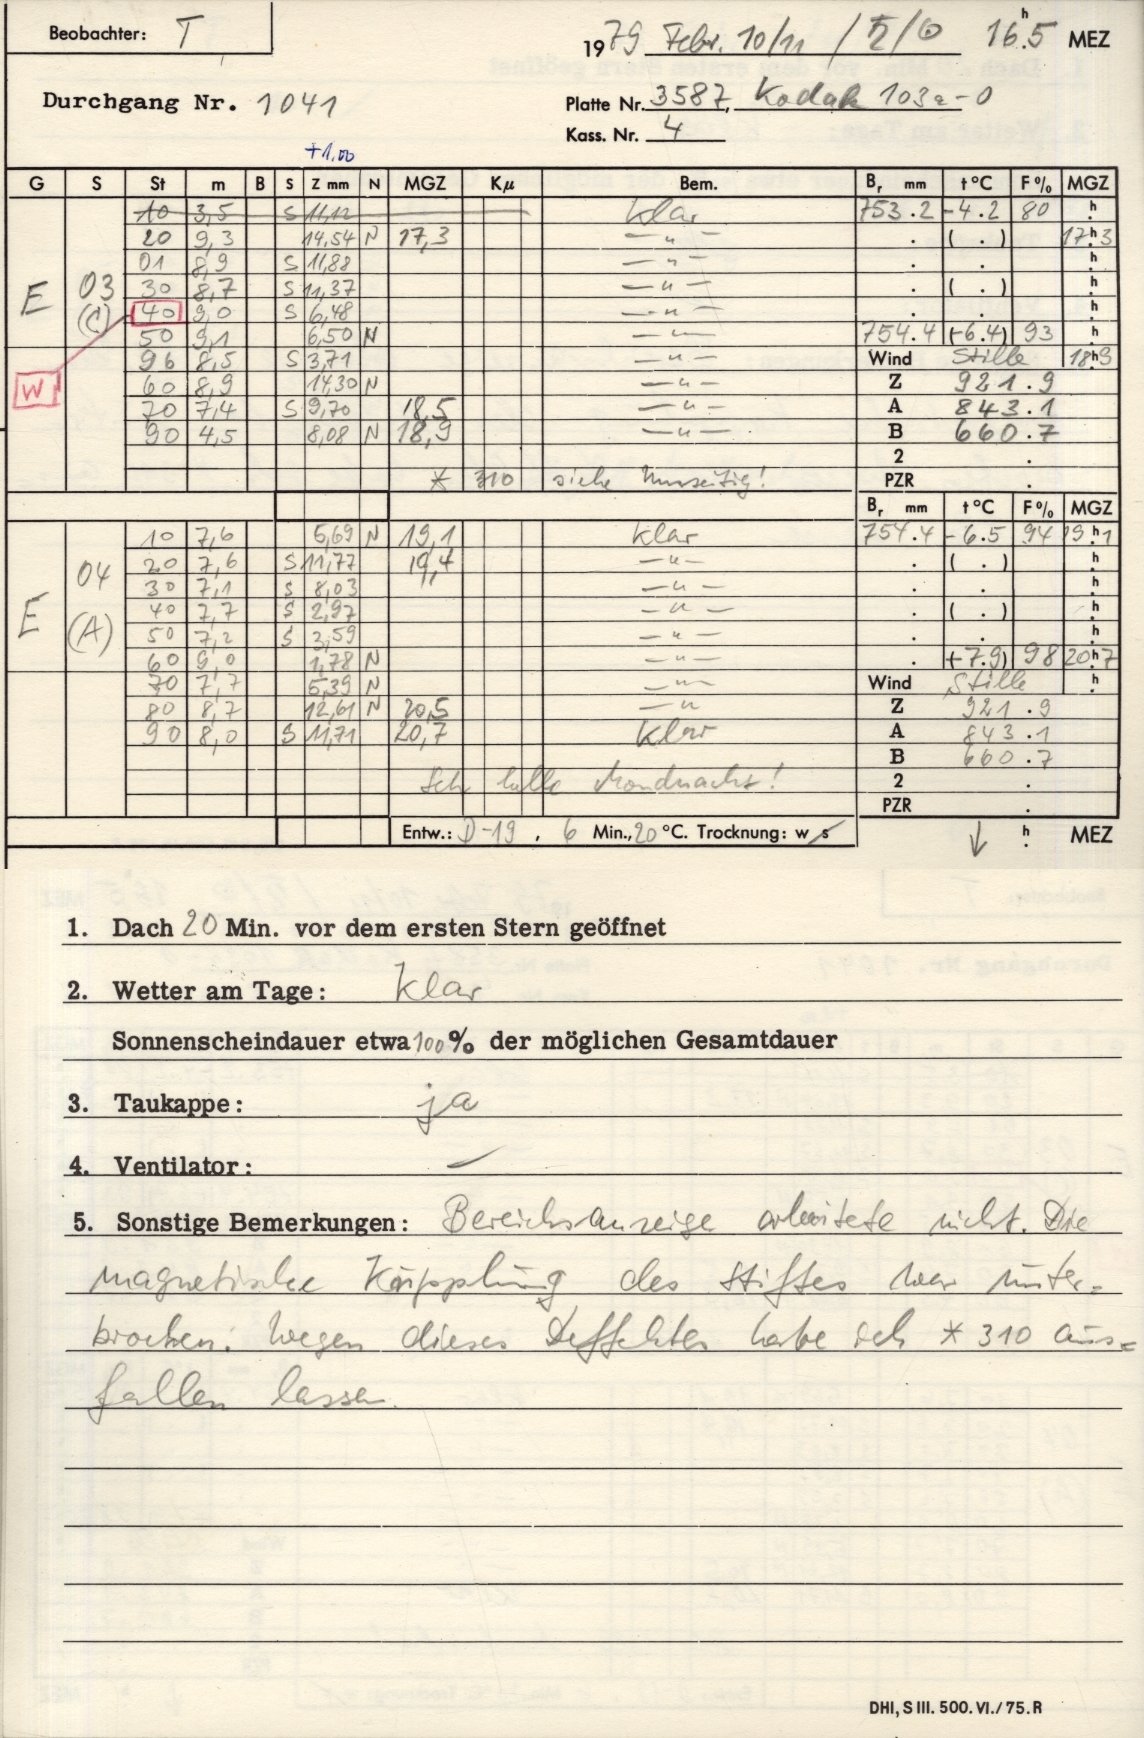 Beobachter: T
1979 Febr. 10/11 / ♄/☉ 16h.5 MEZ
Durchgang Nr. 1041
Platte Nr. 3587, Kodak 103a-0
Kass. Nr. 4
+1.00
G S St m B S Z mm N MGZ Kµ Bem. Br mm t°C F% MGZ
10 3,5 S 11,12 klar 753.2 -4.2 80 h
20 9,3 14,54 N 17,3 —"— . ( . ) 17h3
01 8,9 S 11,88 —"— . . h
E 03 30 8,7 S 11,37 —"— . ( . ) h
(C) 40 9,0 S 6,48 —"— . . h
50 9,1 6,50 N —"— 754.4 (-6.4) 93 h
96 8,5 S 3,71 —"— Wind Stille 18h9
W 60 8,9 14,30 N —"— Z 921.9
70 7,4 S 9,70 18,5 —"— A 843.1
90 4,5 8,08 N 18,9 —"— B 660.7
2 .
* 310 siehe Umseitig! PZR .
Br mm t°C F% MGZ
10 7,6 5,69 N 19,1 klar 754.4 -6.5 94 19h1
04 20 7,6 S 11,77 19,4 —"— . ( . ) h
30 7,1 S 8,03 —"— . . h
E (A) 40 7,7 S 2,97 —"— . ( . ) h
50 7,2 S 3,59 —"— . . h
60 9,0 1,78 N —"— . (-7.9) 98 20h7
70 7,7 5,39 N —"— Wind Stille h
80 8,7 12,61 N 20,5 —"— Z 921.9
90 8,0 S 11,71 20,7 klar A 843.1
B 660.7
Sehr helle Mondnacht! 2 .
PZR .
Entw.: D-19, 6 Min., 20 °C. Trocknung: w/s ↓ h. MEZ
1. Dach 20 Min. vor dem ersten Stern geöffnet
2. Wetter am Tage: klar
Sonnenscheindauer etwa 100% der möglichen Gesamtdauer
3. Taukappe: ja
4. Ventilator: —
5. Sonstige Bemerkungen: Bereichsanzeige arbeitete nicht. Die
magnetische Kupplung des Stiftes war unter-
brochen. Wegen dieses Deffektes habe ich * 310 aus-
fallen lassen.
DHI, S III. 500. VI./75. R